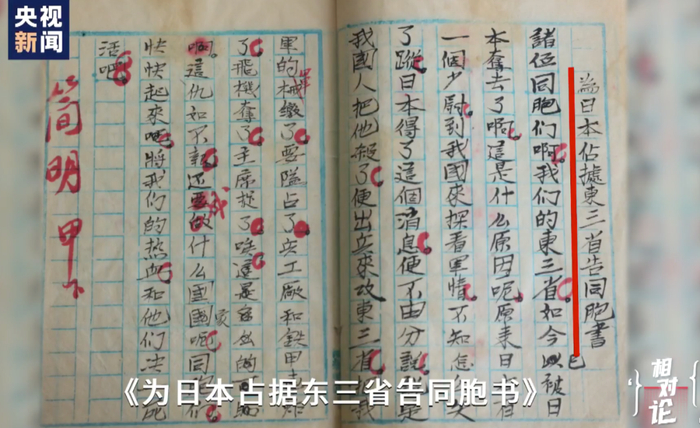 央视新闻
為日本佔據東三省告同胞書
諸位同胞們啊我们的東三省如今被日
已
本奪去了啊這是什么原因呢原来日有
一個少尉到我國來探看軍情不知怎么失
了蹤日本得了這個消息便不由分說是
我國人把他殺了便出兵來攻東三省我
軍的械繳了要隘占了兵工廠和鉄甲炸
了飛機奪了主席捉了唉這是多么的可
啊這仇如不還要做什么國呢同
快快起來吧將我们的熱血和他们去死
活吧
簡明 甲下
《为日本占据东三省告同胞书》
相对论